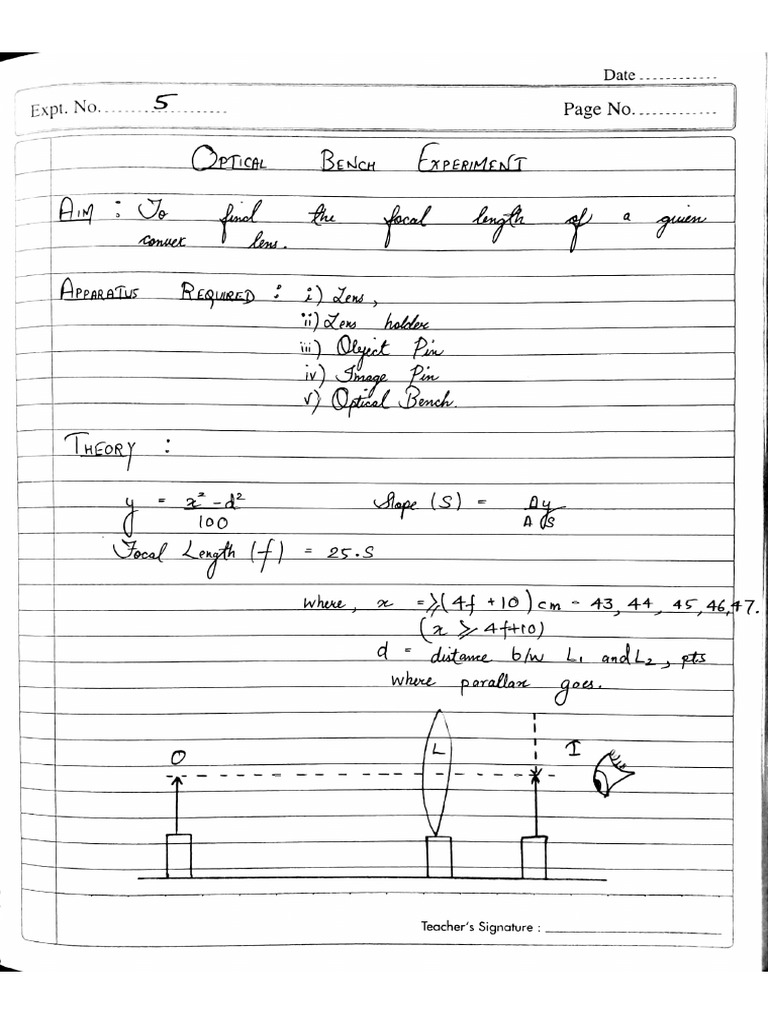 Date ............
Expt. No. ........5..........
Page No. ............
OPTICAL BENCH EXPERIMENT
AIM : To find the focal length of a given
convex lens.
APPARATUS REQUIRED : i) Lens,
ii) Lens holder
iii) Object Pin
iv) Image Pin
v) Optical Bench.
THEORY :
y = x² - d² / 100 Slope (S) = Δy / Δs
Focal Length (f) = 25.S
where, x = ≥(4f +10) cm - 43, 44, 45, 46, 47.
(x ≥ 4f+10)
d = distance b/w L₁ and L₂, pts
where parallax goes.
O L I
Teacher's Signature : ____________